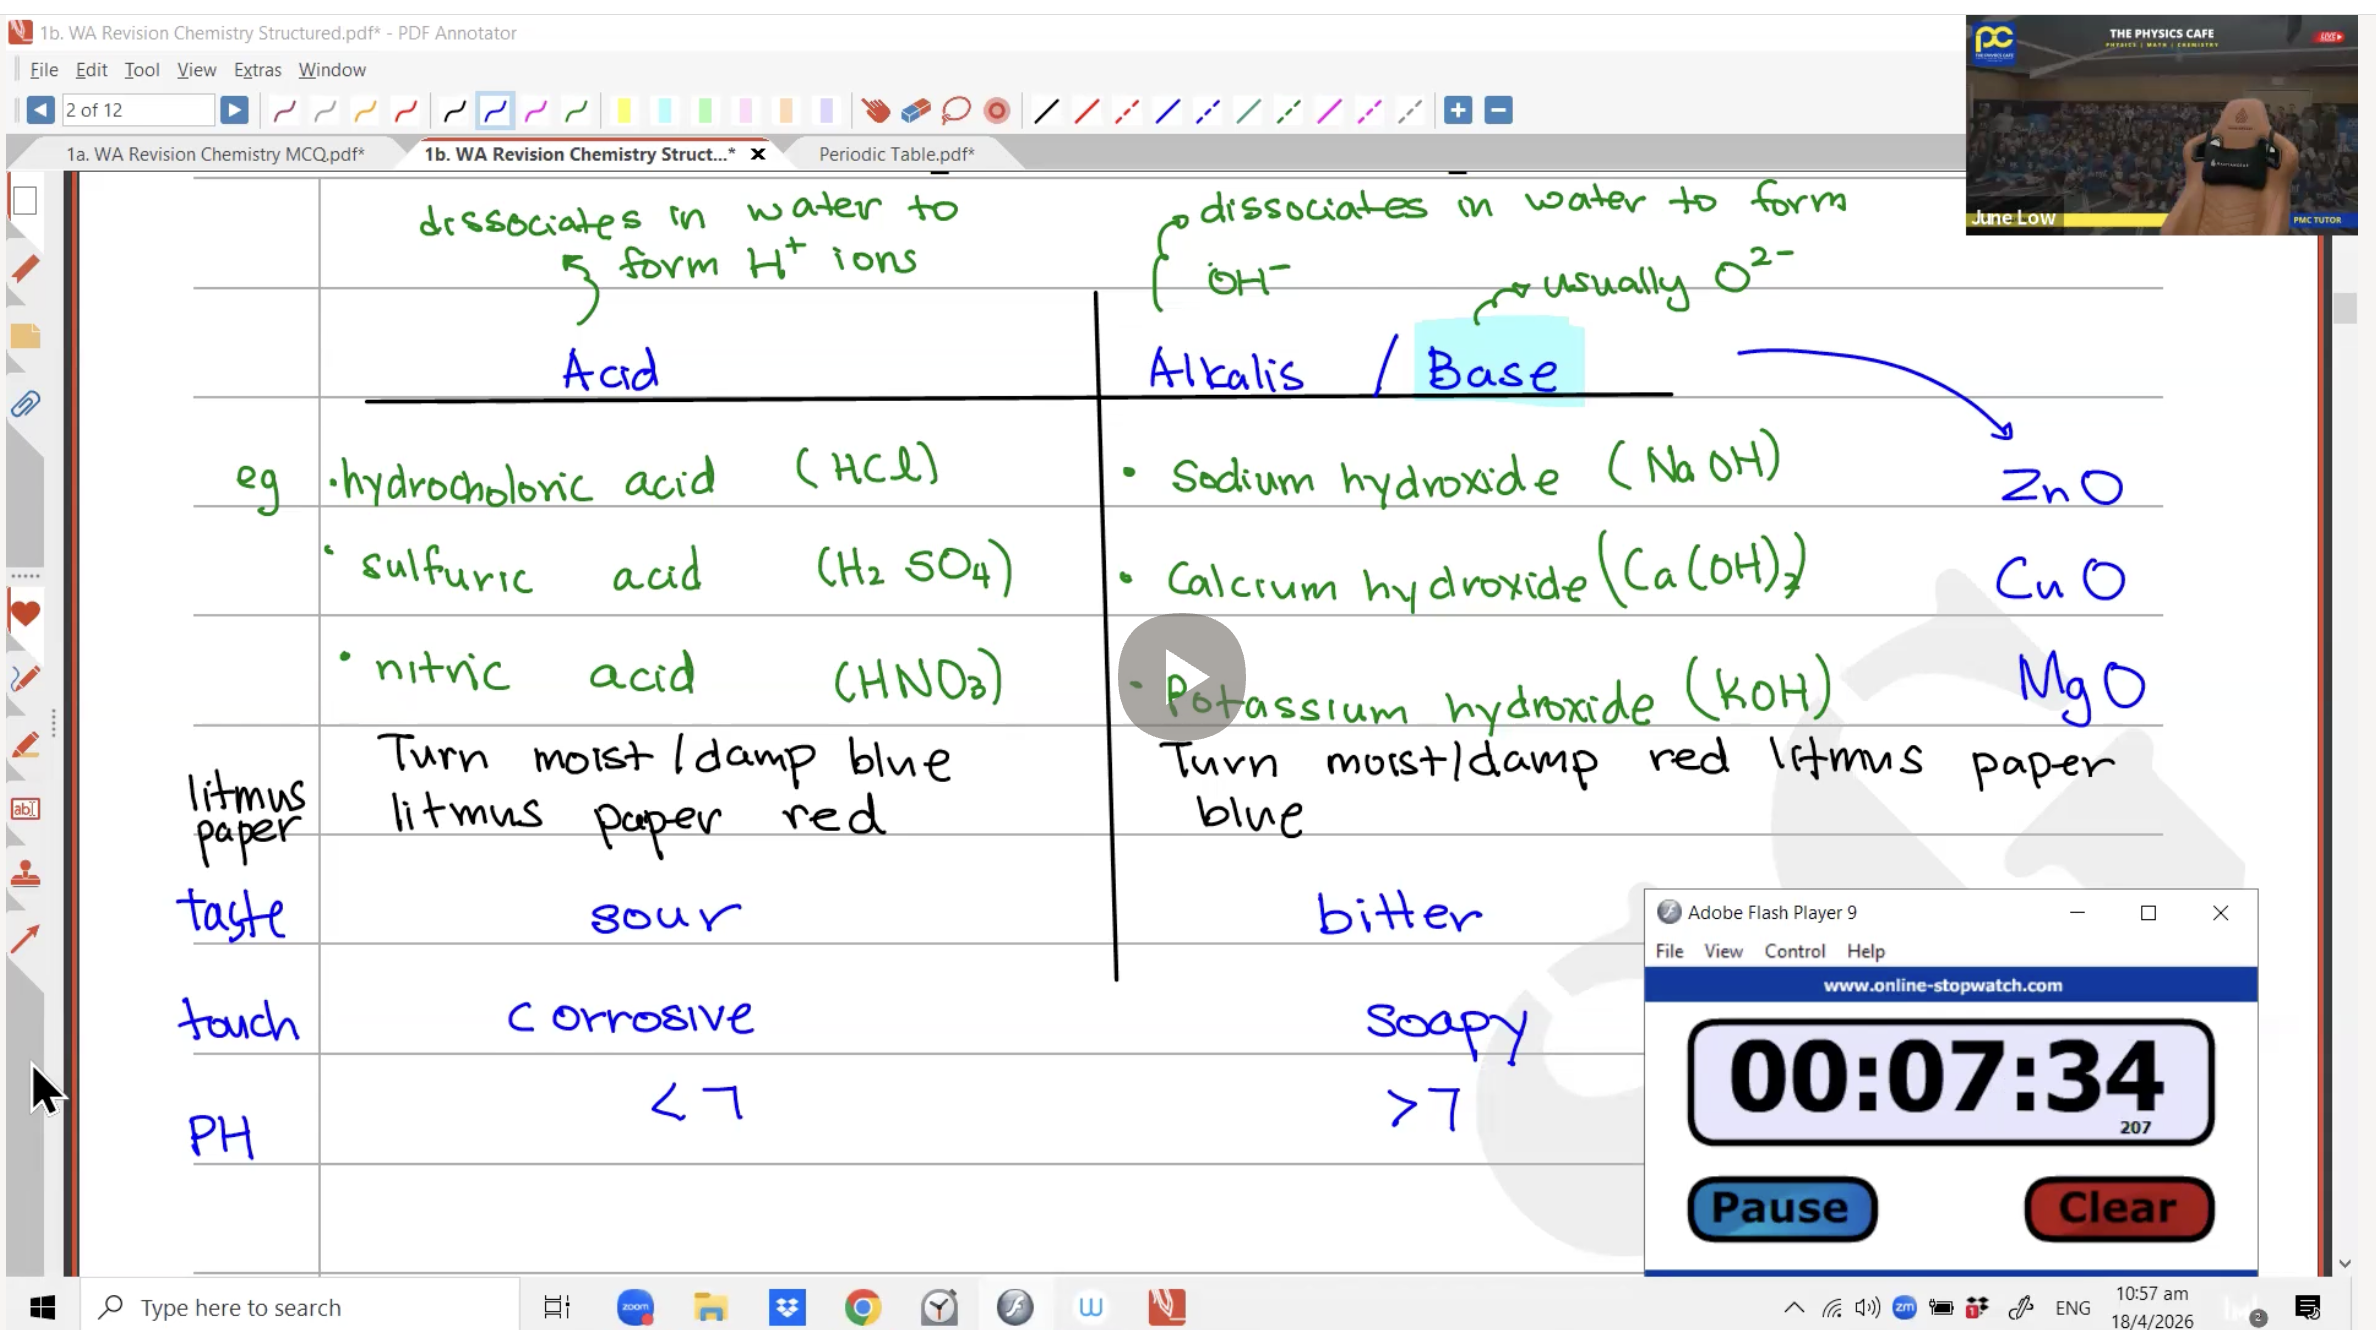 1b. WA Revision Chemistry Structured.pdf* - PDF Annotator
File Edit Tool View Extras Window
2 of 12
1a. WA Revision Chemistry MCQ.pdf*
1b. WA Revision Chemistry Struct...*
Periodic Table.pdf*
pc
THE PHYSICS CAFE
PHYSICS | MATH | CHEMISTRY
LIVE
June Low
PMC TUTOR
dissociates in water to
form H+ ions
dissociates in water to form
OH−
usually O2−
Acid
Alkalis / Base
eg
• hydrocholoric acid (HCl)
• Sodium hydroxide (NaOH)
ZnO
• sulfuric acid (H2 SO4)
• Calcium hydroxide (Ca(OH)2)
CuO
• nitric acid (HNO3)
• Potassium hydroxide (KOH)
MgO
litmus
paper
Turn moist/damp blue
litmus paper red
Turn moist/damp red litmus paper
blue
taste
sour
bitter
touch
corrosive
soapy
PH
<7
>7
Adobe Flash Player 9
File View Control Help
www.online-stopwatch.com
00:07:34
207
Pause
Clear
Type here to search
zoom
zm
1
ENG
10:57 am
18/4/2026
2